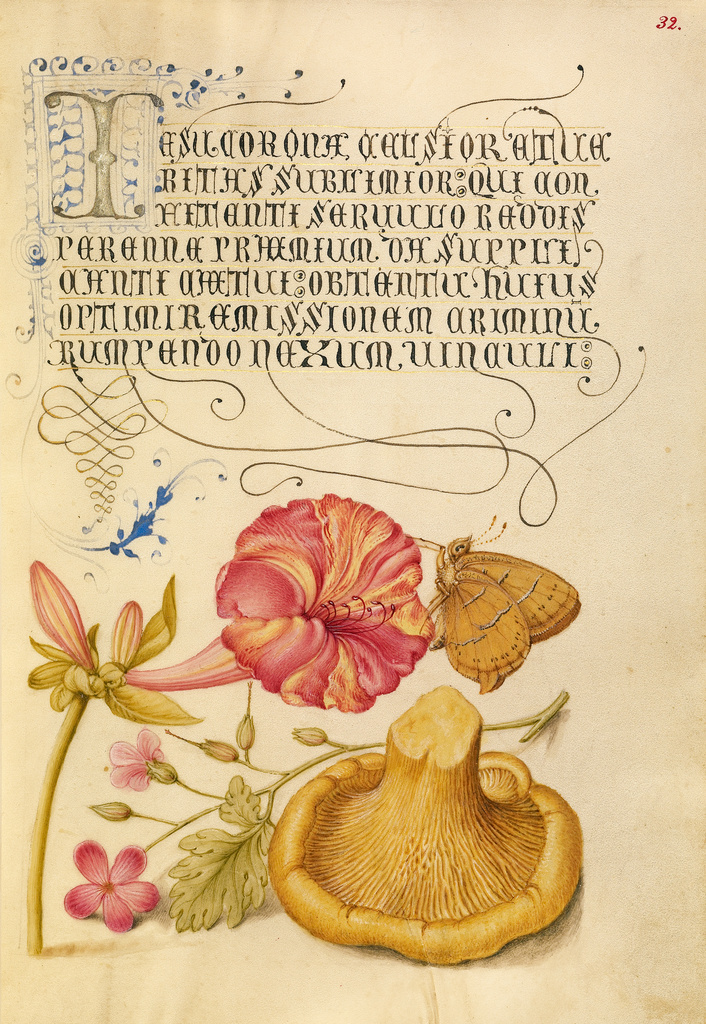 32.
IESU CORONA CELSIOR ET UE
RITAS SUBLIMIOR: QUI CON
FITENTI SERUULO REDDIS
PERENNE PRÆMIUM. DA SUPPLI
CANTI CÆTUI: OBTENTU HUIUS
OPTIMI REMISSIONEM CRIMINU
RUMPENDO NEXUM UINCULI: